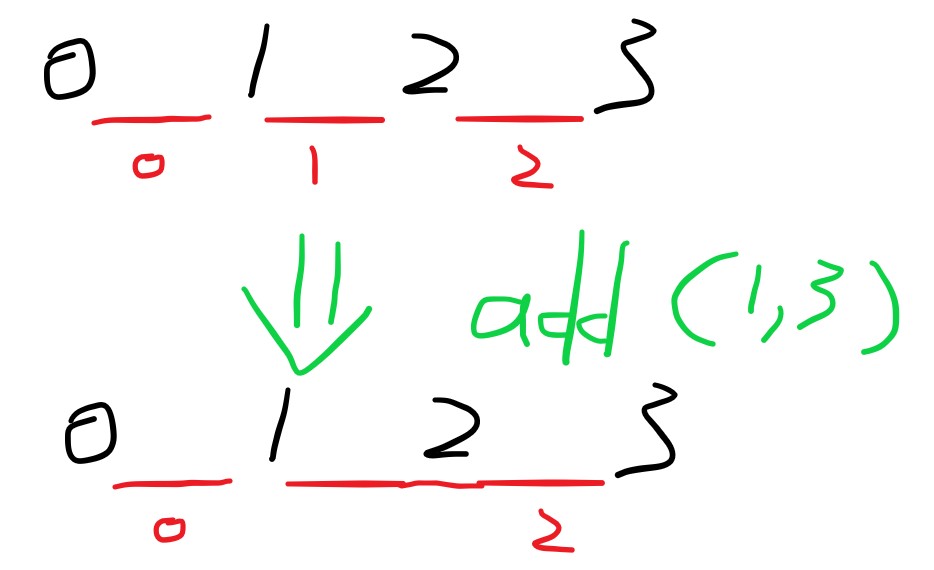 0 1 2 3
0 1 2
add (1,3)
0 1 2 3
0 2